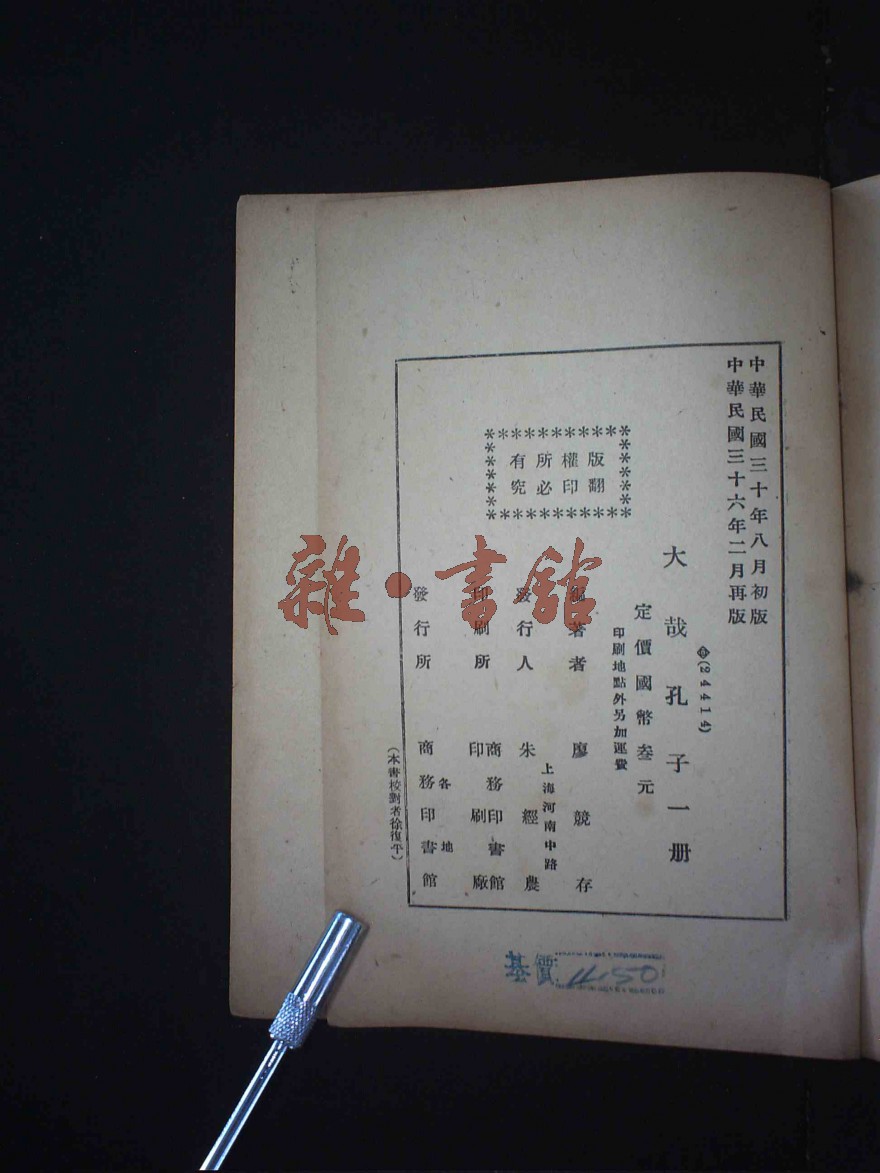 中華民國三十年八月初版
中華民國三十六年二月再版
(24414)
大哉孔子一册
定價國幣叁元
印刷地點外另加運費
版權所有
翻印必究
著者 廖競存
發行人 朱經農
上海河南中路
印刷所 商務印書館
印刷廠
發行所 各地
商務印書館
(本書校對者徐復平)
雜·書館
基價